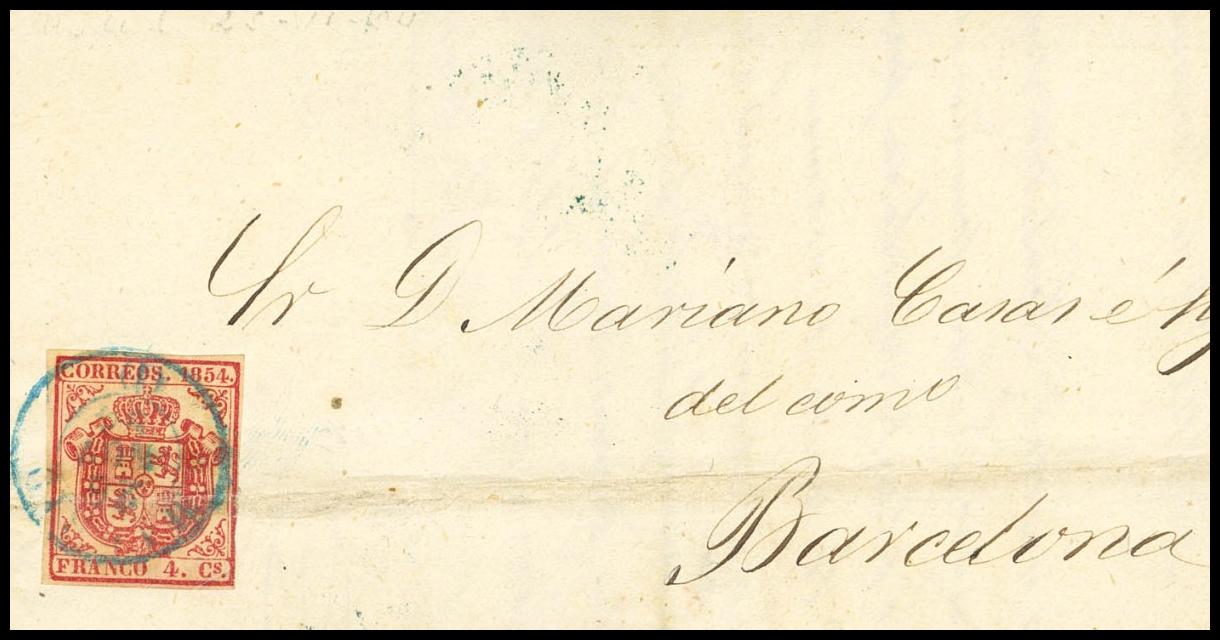 Sr D Mariano Casas é
del comº
Barcelona
CORREOS. 1854.
FRANCO 4. Cs.